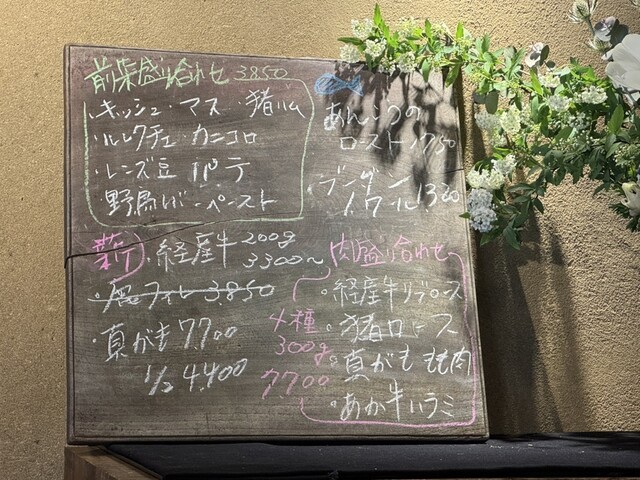 前菜盛り合わせ 3850
・キッシュ・マス・猪ハム
・ルレクチェ・カニコロ
・レンズ豆 パテ
・野鳥レバーペースト
あんこうの
ロースト 1750
ブーダン
ノワール 1320
薪 ・経産牛 200g
3300〜
・鹿フィレ 3.850
・真がも 7.700
1/2 4.400
肉盛り合わせ
4種
300g
7700
・経産牛リブロース
・猪ロース
・真がももも肉
・あか牛ハラミ